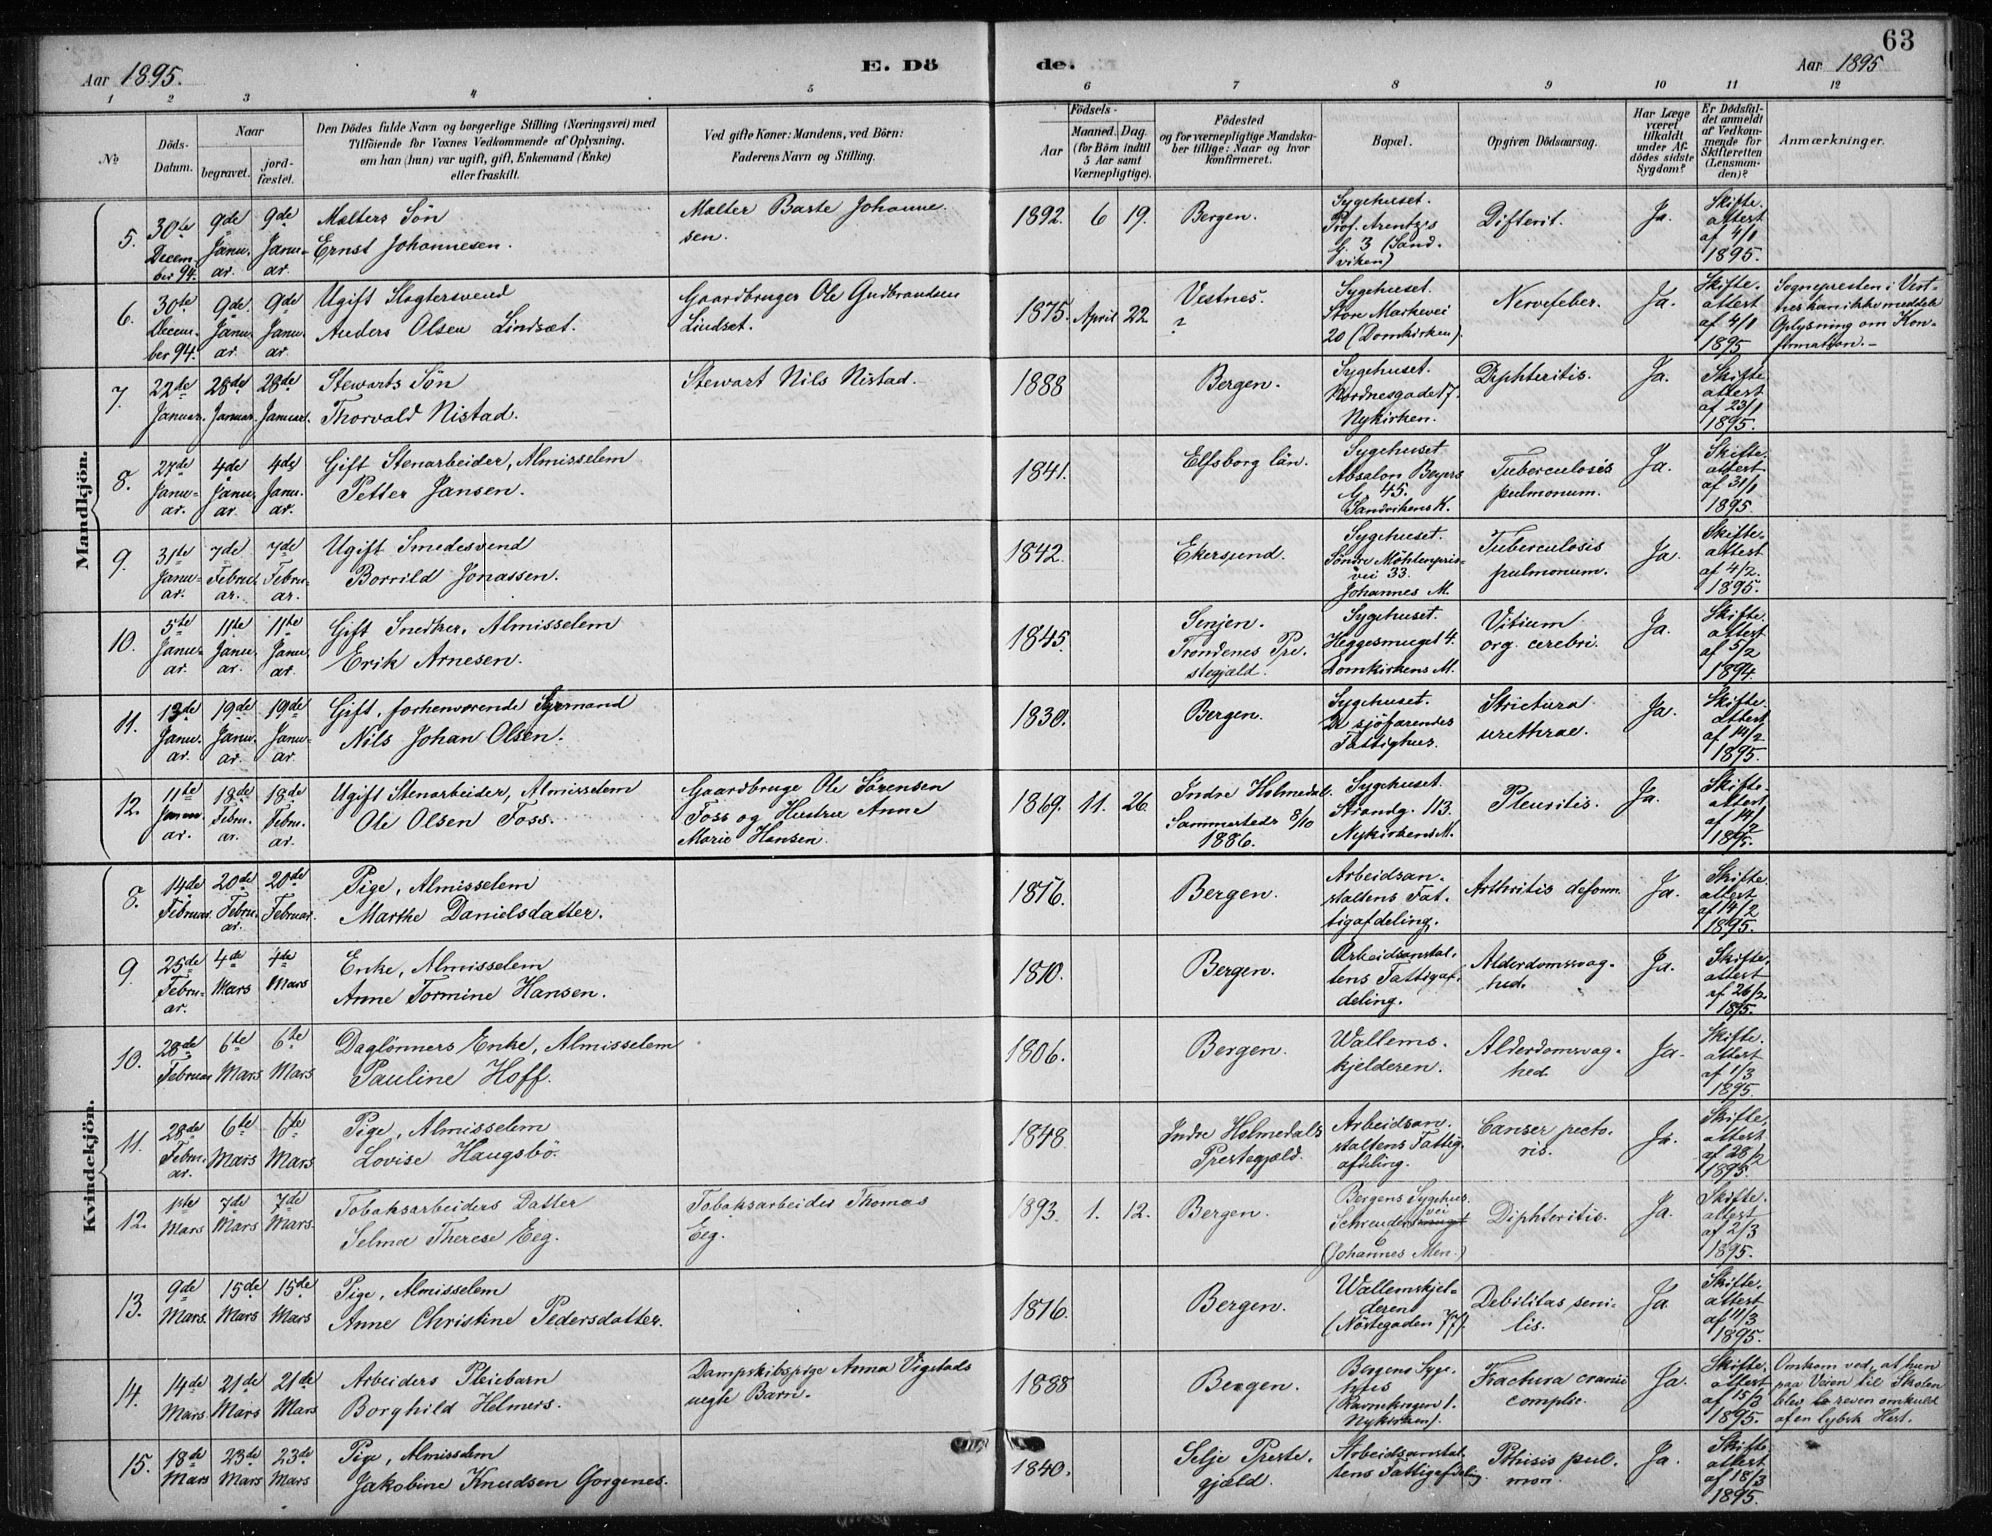 63
Aar 1895.
E. Dö de.
Aar 1895
1 2 3 4 5 6 7 8 9 10 11 12
No
Döds-Datum.
Naar
begravet.
jord-fæstet.
Den Dödes fulde Navn og borgerlige Stilling (Næringsvei) med
Tilföiende for Voxnes Vedkommende af Oplysning,
om han (hun) var ugift, gift, Enkemand (Enke)
eller fraskilt.
Ved gifte Koner: Mandens, ved Börn:
Faderens Navn og Stilling.
Födsels-
Aar
Maaned. Dag.
(for Börn indtil
5 Aar samt
Værnepligtige).
Födested
og for værnepligtige Mandska-
ber tillige: Naar og hvor
konfirmeret.
Bopæl.
Opgiven Dödsaarsag.
Har Læge
været
tilkaldt
under Af-
dödes sidste
Sygdom?
Er Dödsfal-
det anmeldt
af Vedkom-
mende for
Skifteretten
(Lensman-
den)?
Anmærkninger.
Mandkjön.
5. 30te Decem-ber 94. 9de Janu-ar. 9de Janu-ar. Malters Sön Ernst Johannesen. Malter Baste Johanne-sen. 1892. 6 19. Bergen. Sygehuset. Prof. Arentzes G. 3 (Sand-viken) Difterit. Ja. Skifte-attest af 4/1 1895.
6. 30te Decem-ber 94. 9de Janu-ar. 9de Janu-ar. Ugift Slagtersvend Anders Olsen Lindsæt. Gaardbruger Ole Gudbrandsen Lindset. 1875. April 22. Vestnes. ? Sygehuset. Store Markevei 20 (Domkirken). Nervefeber. Ja. Skifte-attest af 4/1 1895 Sognepresten i Vest-nes kan ikke meddele Oplysning om Kon-firmation.-
7. 22de Januar. 28de Januar. 28de Januar. Stewarts Sön Thorvald Nistad. Stewart Nils Nistad. 1888 Bergen. Sygehuset. Nordnesgade 17. Nykirken. Diphteritis. Ja. Skifte-attest af 23/1 1895.
8. 27de Janu-ar. 4de Janu-ar. 4de Janu-ar. Gift Stenarbeider, Almisselem Petter Jansen. 1841. Elfsborg län. Sygehuset Absalon Beyers G. 45. Sandvikens K. Tuberculosis pulmonum. Ja. Skifte-attest af 31/1 1895.
9. 31te Janu-ar. 7de Febru-ar. 7de Febru-ar. Ugift Smedesvend Borrild Jonassen. 1842. Ekersund. Sygehuset. Söndre Möhlenpris-vei 33. Johannes M. Tuberculosis pulmonum. Ja. Skifte-attest af 4/2. 1895.
10. 5te Janu-ar. 11te Janu-ar. 11te Janu-ar. Gift Snedker, Almisselem Erik Arnesen. 1845. Senjen. Trondenes Pre-stegjæld. Sygehuset. Heggesmuget 4. Domkirkens M. Vitium org. cerebri. Ja. Skifte-attest af 5/2 1894.
11. 13de Janu-ar. 19de Janu-ar. 19de Janu-ar. Gift, forhenværende Styrmand Nils Johan Olsen. 1830. Bergen. Sygehuset. De sjöfarendes Fattighus. Strictura urethrae. Ja. Skifte-attest af 14/2 1895.
12. 11te Janu-ar. 18de Febru-ar. 18de Febru-ar. Ugift Stenarbeider, Almisselem Ole Olsen Foss. Gaardbruge Ole Sörensen Foss og Hustru Anne Marie Hansen. 1869. 11. 26. Indre Holmedal. Sammesteds 8/10 1886. Sygehuset. Strandg. 113. Nykirkens M. Pleuritis. Ja. Skifte-attest af 14/2 1895.
Kvindekjön.
8. 14de Februar. 20de Febru-ar. 20de Februar. Pige, Almisselem Marthe Danielsdatter. 1816. Bergen. Arbeidsan-staltens Fat-tigafdeling. Arthritis deform. Ja. Skifte-attest af 14/2 1895.
9. 25de Febru-ar. 4de Mars 4de Mars Enke, Almisselem Anne Tormine Hansen. 1810. Bergen. Arbeidsanstal-tens Fattigaf-deling. Alderdomssvag-hed. Ja. Skifte-attest af 26/2 1895.
10. 28de Februar 6te Mars 6te Mars Daglönners Enke, Almisselem Pauline Hoff. 1806. Bergen. Wallems-kjelderen. Alderdomssvag-hed. Ja. Skifte-attest af 1/3 1895.
11. 28de Febru-ar. 6te Mars 6te Mars. Pige, Almisselem Lovise Haugsbö. 1848. Indre Holmedals Prestegjæld. Arbeidsan-staltens Fattig-afdeling. Canser pecto-ris. Ja. Skifte-attest af 28/2 1895.
12. 1ste Mars 7de Mars 7de Mars. Tobaksarbeiders Datter Selma Therese Eeg. Tobaksarbeider Thomas Eeg. 1893. 1. 12. Bergen. Bergens Sygehus. Schreuders vei 6 (Johannes Men.) Diphteritis. Ja. Skifte-attest af 2/3 1895.
13. 9de Mars. 15de Mars 15de Mars Pige, Almisselem Anne Christine Pedersdatter. 1816. Bergen. Wallemskjel-deren (Nöstegaden 77). Debilitas seni-lis. Ja. Skifte-attest af 11/3 1895.
14. 14de Mars. 21de Mars 21de Mars Arbeiders Pleiebarn Borghild Helmers. Dampskibspige Anna Vigstads uegte Barn. 1888 Bergen. Bergens Syge-hus (Ravnkrogen 1. Nykirken). Fractura cranii complic. Ja. Skifte-attest af 15/3 1895. Omkom ved, at hun paa Veien til Skolen blev reven omkuld af en lybsk Hest.
15. 18de Mars 23de Mars 23de Mars Pige, Almisselem Jakobine Knudsen Gorgenes. 1840. Selje Preste-gjæld. Arbeidsanstal-tens Fattigafdeling. Phisis pul-mon. Ja. Skifte-attest af 18/3 1895.